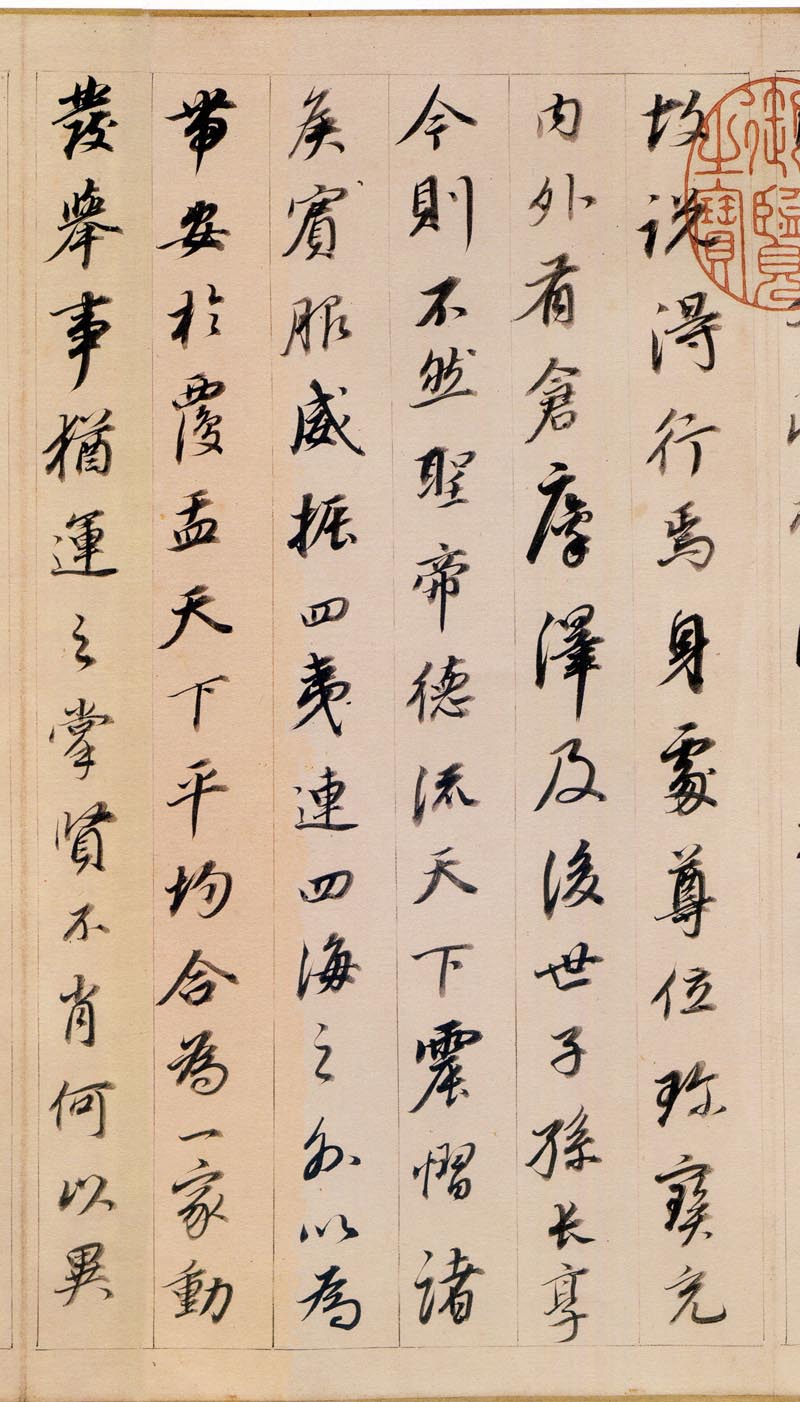 御覽之寶
故說得行焉身處尊位珍寶充
内外有倉廩澤及後世子孫長享
今則不然聖帝德流天下震慴諸
侯賓服威振四夷連四海之外以為
帶安於覆盂天下平均合為一家動
發舉事猶運之掌賢不肖何以異